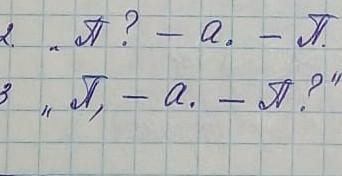 2. „П? – а. – П.
3 „П, – а. – П?"